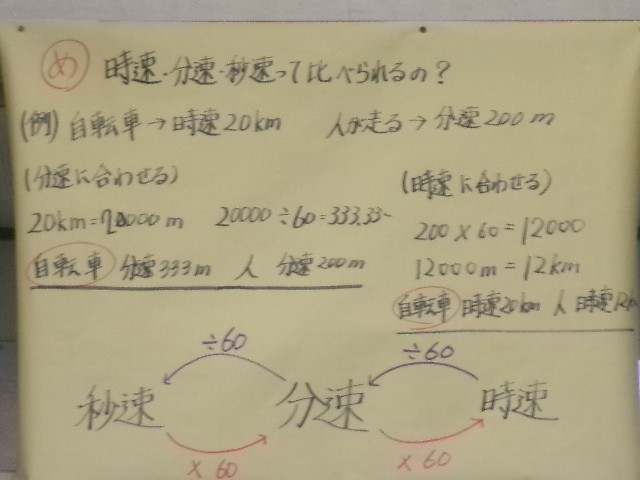 め 時速・分速・秒速って比べられるの？
(例) 自転車→時速20km 人が走る→分速200m
(分速に合わせる)
20km=20000m 20000÷60=333.33…
自転車 分速333m 人 分速200m
(時速に合わせる)
200×60=12000
12000m=12km
自転車 時速20km 人 時速12km
÷60 ÷60
秒速 分速 時速
×60 ×60